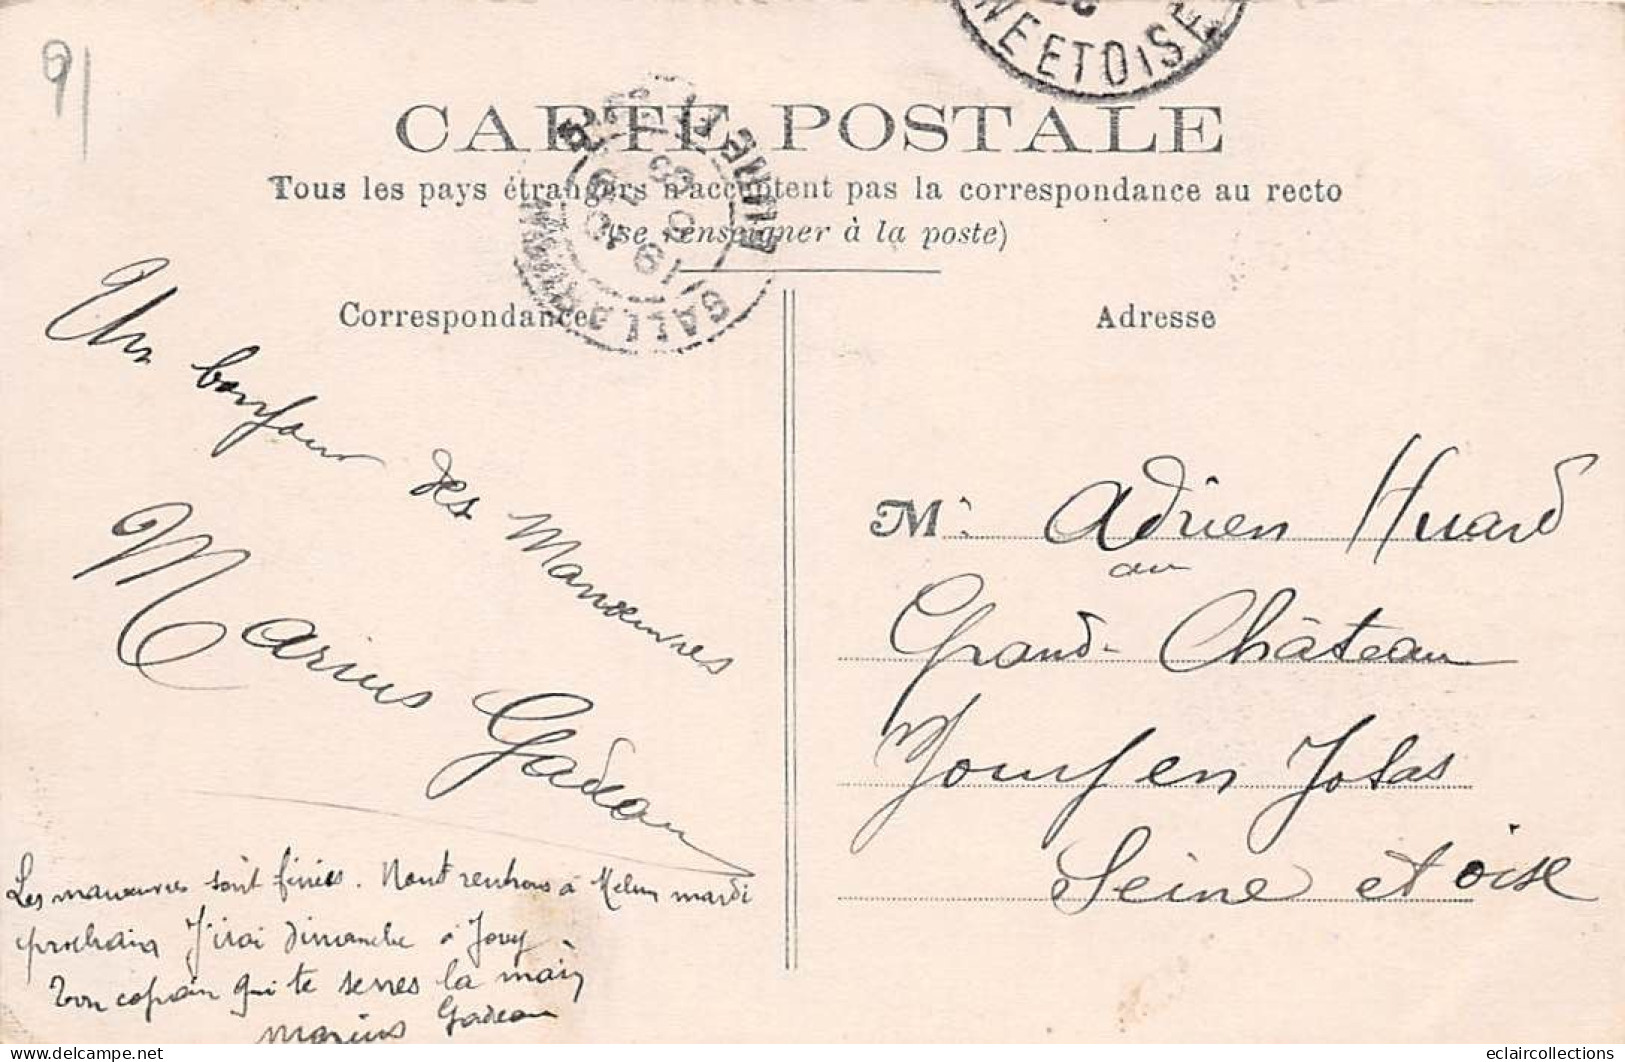 91
NE ETOISE
CARTE POSTALE
Tous les pays étrangers n'acceptent pas la correspondance au recto
(se renseigner à la poste)
Correspondance
Adresse
Un bonjour des Manœuvres
Marius Gadeau
Les manœuvres sont finies. Nous rentrons à Melun mardi
prochain J'irai dimanche à Jouy
Ton copain qui te serres la main
Marius Gadeau
M. Adrien Huard
au
Grand-Château
Jouy en Josas
Seine et Oise
eclaircollections